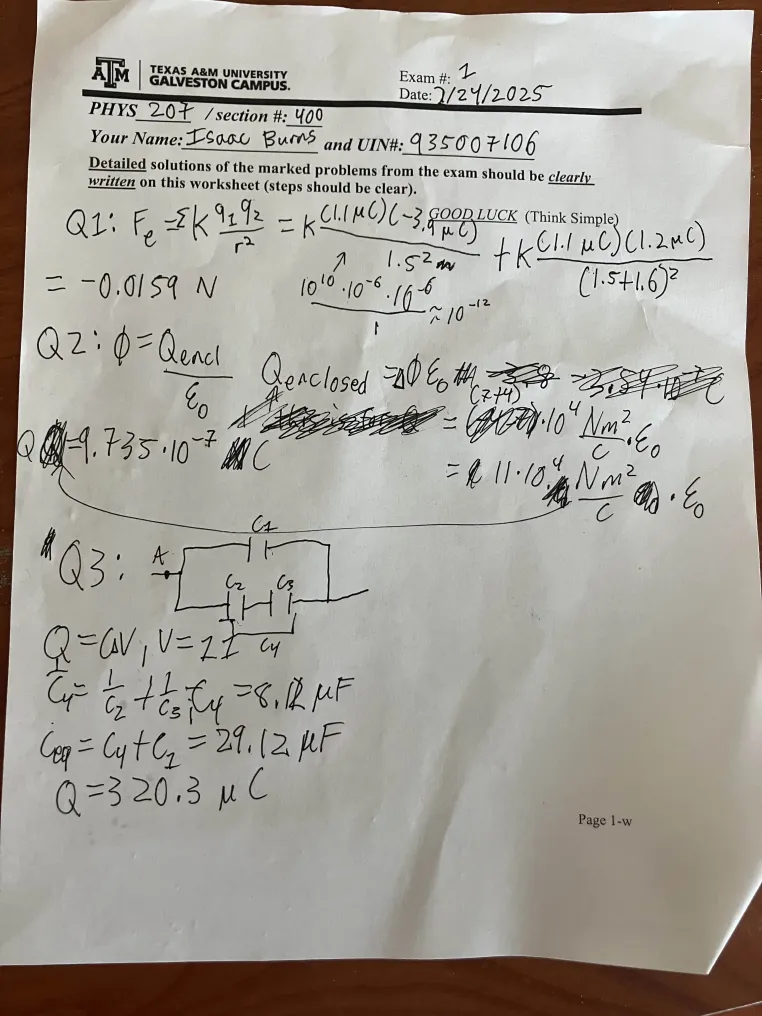 TEXAS A&M UNIVERSITY
GALVESTON CAMPUS.
Exam #: 1
Date: 2/24/2025
PHYS 207 / section #: 400
Your Name: Isaac Burns and UIN#: 935007106
Detailed solutions of the marked problems from the exam should be clearly
written on this worksheet (steps should be clear).
GOOD LUCK (Think Simple)
Q1: Fe = Σ K q1 q2 / r² = K (1.1 μC)(-3.9 μC) / 1.5² + K (1.1 μC)(1.2 μC) / (1.5+1.6)²
= -0.0159 N
10¹⁰ · 10⁻⁶ · 10⁻⁶ / 1 ≈ 10⁻¹²
Q2: ϕ = Qencl / ε0
Qenclosed = Δϕ ε0
(7+4) · 10⁴ Nm²/C · ε0
= 11 · 10⁴ Nm²/C · ε0
Q = 9.735 · 10⁻⁷ C
Q3: A C1
C2 C3
C4
Q = CΔV, V = 11
1/C4 = 1/C2 + 1/C3; C4 = 8.12 μF
Ceq = C4 + C1 = 29.12 μF
Q = 320.3 μC
Page 1-w